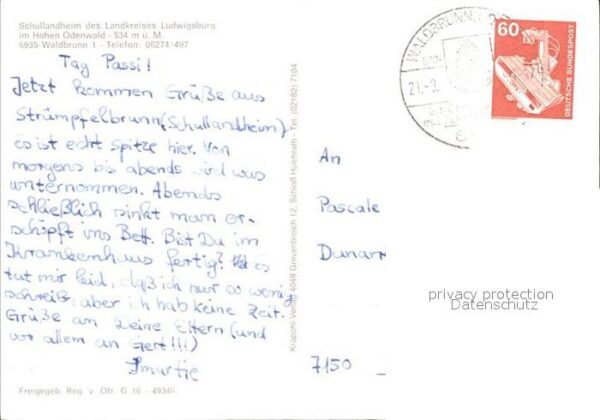 Schullandheim des Landkreises Ludwigsburg
im Hohen Odenwald - 534 m ü. M.
6935 Waldbrunn 1 - Telefon: 06274/497
Tag Passi!
Jetzt kommen Grüße aus
Strümpfelbrunn (Schullandheim)
es ist echt spitze hier. Von
morgens bis abends wird was
unternommen. Abends
schließlich sinkt man er-
schöpft ins Bett. Bist Du im
Krankenhaus fertig? Es
tut mir leid, daß ich nur so wenig
schreib, aber ich hab keine Zeit.
Grüße an Deine Eltern (und
vor allem an Gert!!!)
Freigegeb. Reg. v. Ofr. G 16 - 49346
Krapohl-Verlag 4048 Grevenbroich 12, Schloß Hülchrath - Tel. (02182) 7194
WALDBRUNN
21.-3.
60
DEUTSCHE BUNDESPOST
An
Pascale
Dunarr
7150
privacy protection
Datenschutz